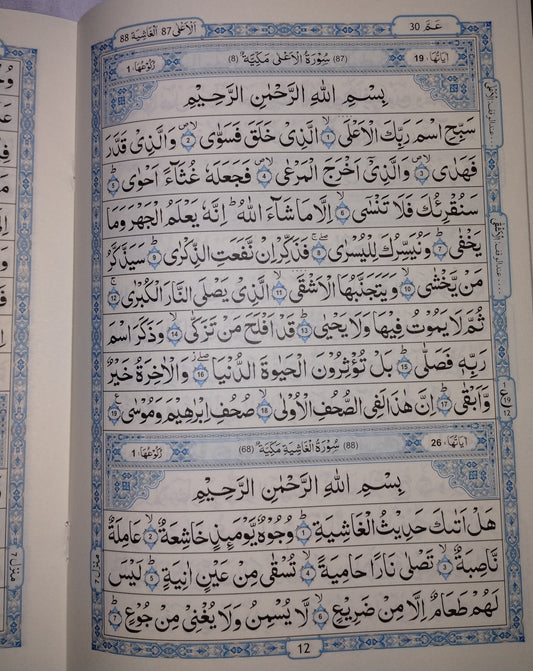 الاعلى 87 الغاشية 88
عمّ 30
اٰیاتُهَا: 19 (87) سُوْرَةُ الْاَعْلٰى مَكِّيَّةٌ (8) رُكُوْعُهَا: 1
بِسْمِ اللهِ الرَّحْمٰنِ الرَّحِيْمِ
سَبِّحِ اسْمَ رَبِّكَ الْاَعْلَى ۙ﴿1﴾ الَّذِيْ خَلَقَ فَسَوّٰى ۪ۙ﴿2﴾ وَالَّذِيْ قَدَّرَ
فَهَدٰى ۪ۙ﴿3﴾ وَالَّذِيْۤ اَخْرَجَ الْمَرْعٰى ۪ۙ﴿4﴾ فَجَعَلَهٗ غُثَآءً اَحْوٰى ؕ﴿5﴾
سَنُقْرِئُكَ فَلَا تَنْسٰٓى ۙ﴿6﴾ اِلَّا مَا شَآءَ اللهُ ؕ اِنَّهٗ يَعْلَمُ الْجَهْرَ وَمَا
يَخْفٰى ؕ﴿7﴾ وَنُيَسِّرُكَ لِلْيُسْرٰى ۚۖ﴿8﴾ فَذَكِّرْ اِنْ نَّفَعَتِ الذِّكْرٰى ؕ﴿9﴾ سَيَذَّكَّرُ
مَنْ يَّخْشٰى ۙ﴿10﴾ وَيَتَجَنَّبُهَا الْاَشْقَى ۙ﴿11﴾ الَّذِيْ يَصْلَى النَّارَ الْكُبْرٰى ۚ﴿12﴾
ثُمَّ لَا يَمُوْتُ فِيْهَا وَلَا يَحْيٰى ؕ﴿13﴾ قَدْ اَفْلَحَ مَنْ تَزَكّٰى ۙ﴿14﴾ وَذَكَرَ اسْمَ
رَبِّهٖ فَصَلّٰى ؕ﴿15﴾ بَلْ تُؤْثِرُوْنَ الْحَيٰوةَ الدُّنْيَا ۖ﴿16﴾ وَالْاٰخِرَةُ خَيْرٌ
وَّاَبْقٰى ؕ﴿17﴾ اِنَّ هٰذَا لَفِي الصُّحُفِ الْاُوْلٰى ۙ﴿18﴾ صُحُفِ اِبْرٰهِيْمَ وَمُوْسٰى ﴿19﴾
اٰیاتُهَا: 26 (88) سُوْرَةُ الْغَاشِيَةِ مَكِّيَّةٌ (68) رُكُوْعُهَا: 1
بِسْمِ اللهِ الرَّحْمٰنِ الرَّحِيْمِ
هَلْ اَتٰىكَ حَدِيْثُ الْغَاشِيَةِ ؕ﴿1﴾ وُجُوْهٌ يَّوْمَئِذٍ خَاشِعَةٌ ۙ﴿2﴾ عَامِلَةٌ
نَّاصِبَةٌ ۙ﴿3﴾ تَصْلٰى نَارًا حَامِيَةً ۙ﴿4﴾ تُسْقٰى مِنْ عَيْنٍ اٰنِيَةٍ ؕ﴿5﴾ لَيْسَ
لَهُمْ طَعَامٌ اِلَّا مِنْ ضَرِيْعٍ ۙ﴿6﴾ لَّا يُسْمِنُ وَلَا يُغْنِيْ مِنْ جُوْعٍ ؕ﴿7﴾
ع
19
12
منزل 7
12